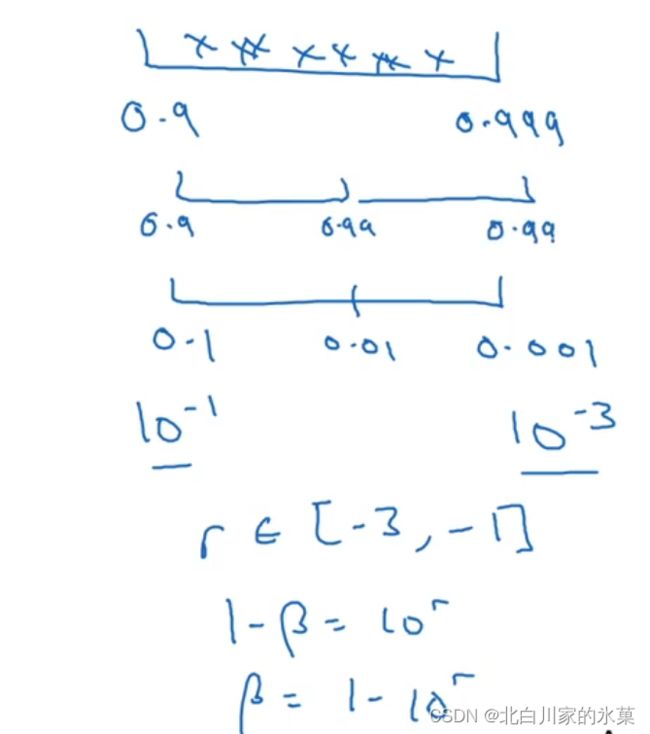 0.9 0.999
0.9 0.99 0.99
0.1 0.01 0.001
10⁻¹ 10⁻³
r ∈ [-3, -1]
1-β = 10ʳ
β = 1-10ʳ
CSDN @北白川家的氷菓